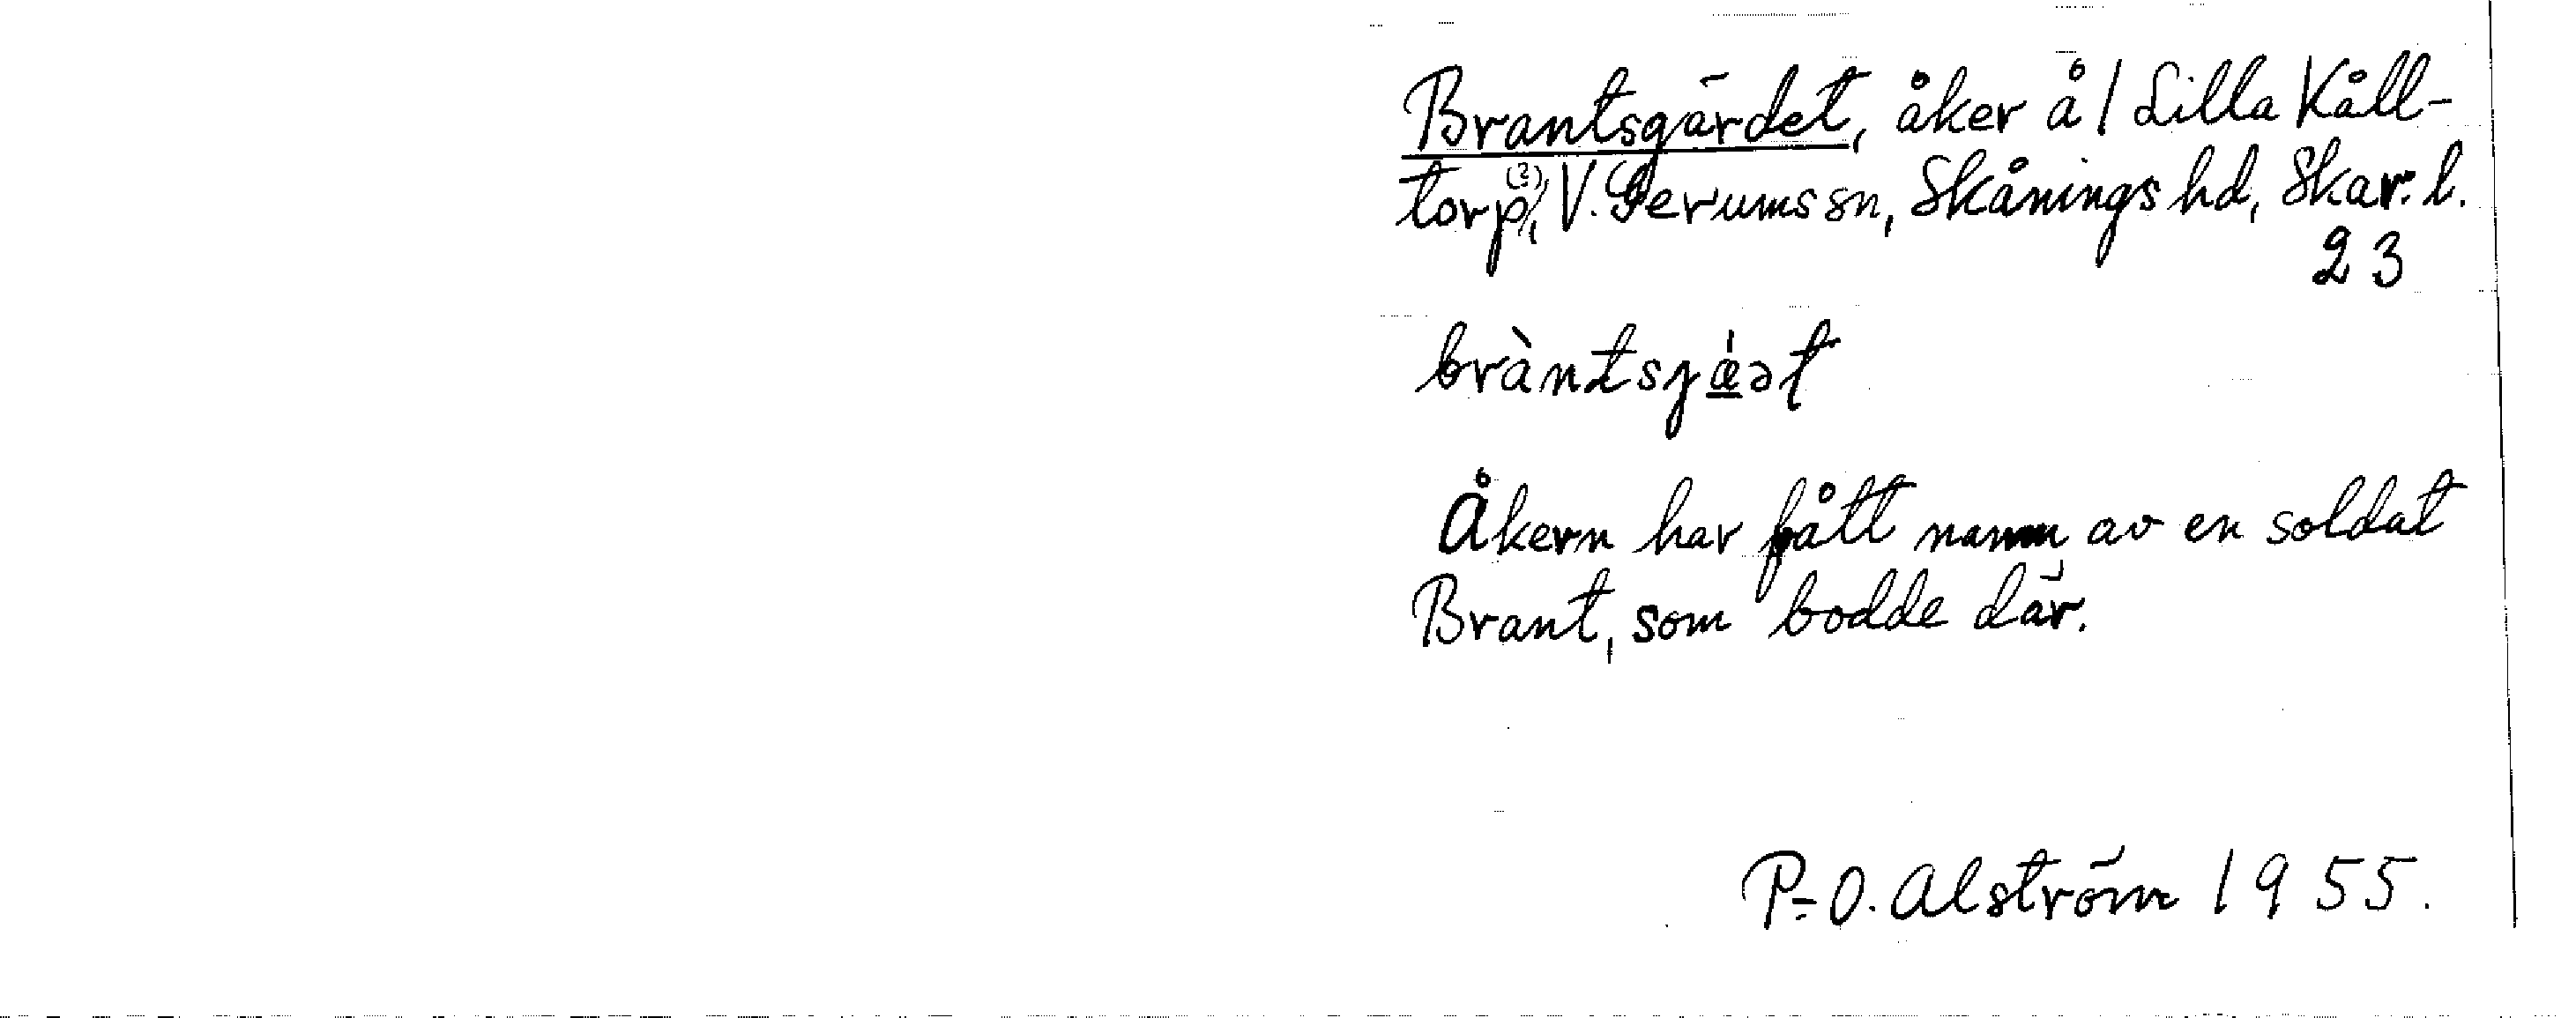 Brantsgärdet, åker å / Lilla Kåll-
torp (2), V. Gerums sn, Skånings hd, Skar. l.
23
bràntsɟǽət
Åkern har fått namn av en soldat
Brant, som bodde där.
P.-O. Alström 1955.